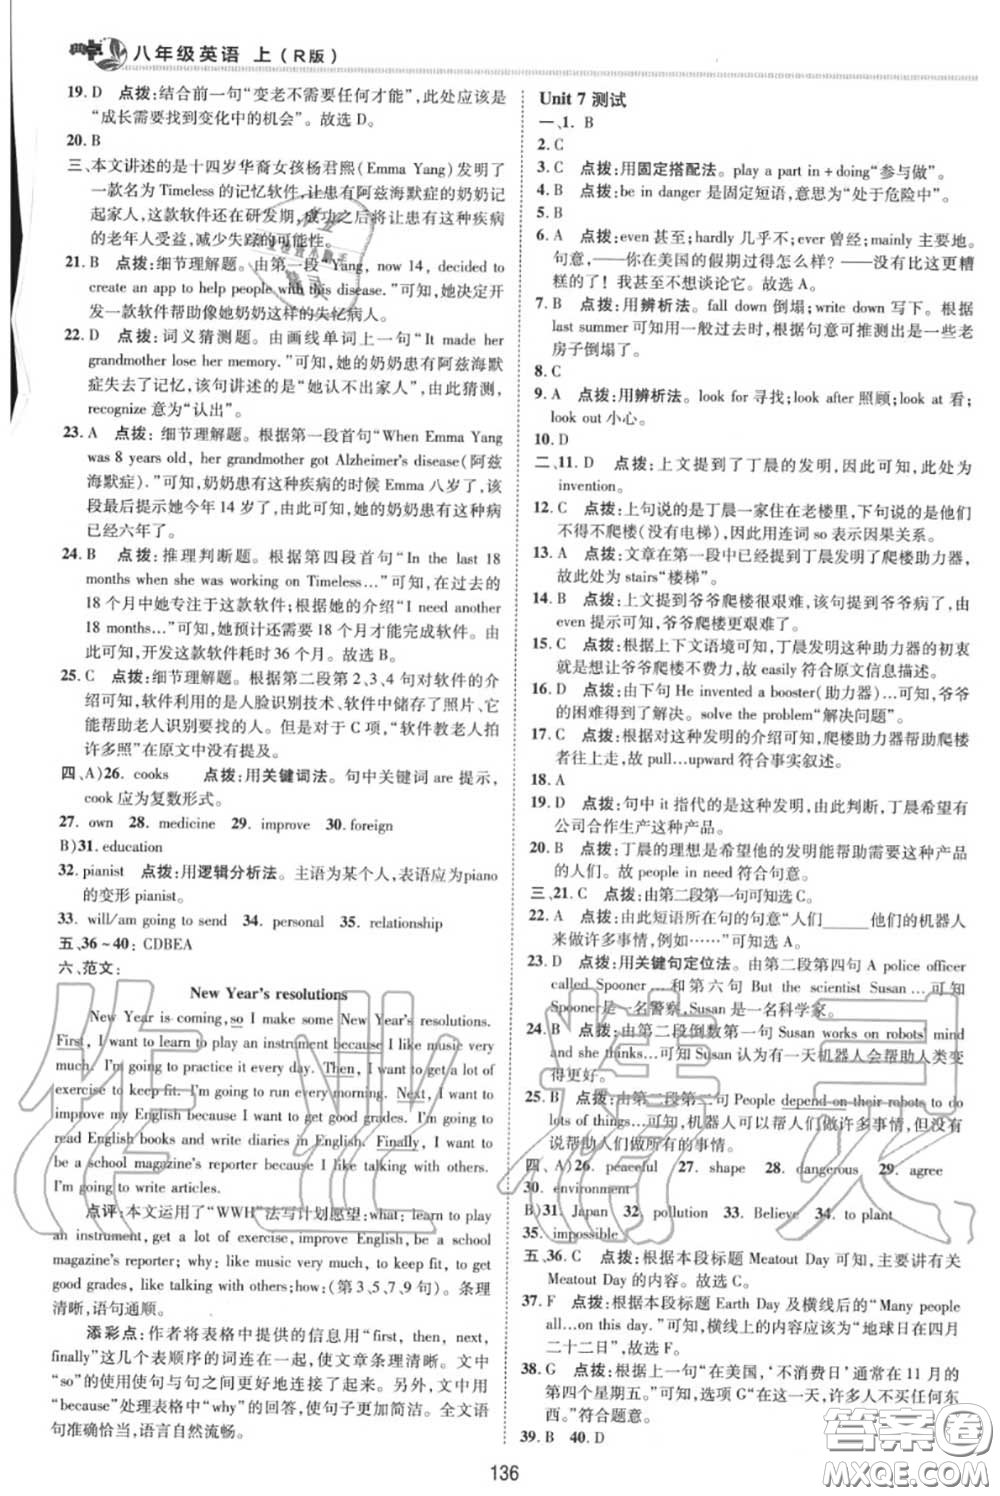 八年级英语 上(R版)
19. D 点拨:结合前一句“变老不需要任何才能”,此处应该是
“成长需要找到变化中的机会”。故选 D。
20. B
三、本文讲述的是十四岁华裔女孩杨君熙(Emma Yang)发明了
一款名为 Timeless 的记忆软件,让患有阿兹海默症的奶奶记
起家人,这款软件还在研发期,成功之后将让患有这种疾病
的老年人受益,减少失踪的可能性。
21. B 点拨:细节理解题。由第一段“Yang, now 14, decided to
create an app to help people with this disease.”可知,她决定开
发一款软件帮助像她奶奶这样的失忆病人。
22. D 点拨:词义猜测题。由画线单词上一句“It made her
grandmother lose her memory.”可知,她的奶奶患有阿兹海默
症失去了记忆,该句讲述的是“她认不出家人”,由此猜测,
recognize 意为“认出”。
23. A 点拨:细节理解题。根据第一段首句“When Emma Yang
was 8 years old, her grandmother got Alzheimer's disease(阿兹
海默症).”可知,奶奶患有这种疾病的时候 Emma 八岁了,该
段最后提示她今年 14 岁了,由此可知,她的奶奶患有这种病
已经六年了。
24. B 点拨:推理判断题。根据第四段首句“In the last 18
months when she was working on Timeless…”可知,在过去的
18 个月中她专注于这款软件;根据她的介绍“I need another
18 months…”可知,她预计还需要 18 个月才能完成软件。由
此可知,开发这款软件耗时 36 个月。故选 B。
25. C 点拨:细节理解题。根据第二段第 2、3、4 句对软件的介
绍可知,软件利用的是人脸识别技术、软件中储存了照片、它
能帮助老人识别要找的人。但是对于 C 项,“软件教老人拍
许多照”在原文中没有提及。
四、A)26. cooks 点拨:用关键词法。句中关键词 are 提示,
cook 应为复数形式。
27. own 28. medicine 29. improve 30. foreign
B)31. education
32. pianist 点拨:用逻辑分析法。主语为某个人,表语应为piano
的变形 pianist。
33. will/am going to send 34. personal 35. relationship
五、36~40: CDBEA
六、范文:
New Year's resolutions
New Year is coming, so I make some New Year's resolutions.
First, I want to learn to play an instrument because I like music very
much. I'm going to practice it every day. Then, I want to get a lot of
exercise to keep fit. I'm going to run every morning. Next, I want to
improve my English because I want to get good grades. I'm going to
read English books and write diaries in English. Finally, I want to
be a school magazine's reporter because I like talking with others.
I'm going to write articles.
点评:本文运用了“WWH”法写计划愿望:what: learn to play
an instrument, get a lot of exercise, improve English, be a school
magazine's reporter; why: like music very much, keep fit, get
good grades, like talking with others;how:(第3,5,7,9句)。条理
清晰,语句通顺。
添彩点:作者将表格中提供的信息用“first, then, next,
finally”这几个表顺序的词连在一起,使文章条理清晰。文中
“so”的使用使句与句之间更好地连接了起来。另外,文中用
“because”处理表格中“why”的回答,使句子更加简洁。全文语
句准确恰当,语言自然流畅。
Unit 7 测试
一、1. B
2. C
3. C 点拨:用固定搭配法。play a part in + doing“参与做”。
4. B 点拨:be in danger 是固定短语,意思为“处于危险中”。
5. B
6. A 点拨:even 甚至;hardly 几乎不;ever 曾经;mainly 主要地。
句意,——你在美国的假期过得怎么样? ——没有比这更糟
糕的了! 我甚至不想谈论它。故选 A。
7. B 点拨:用辨析法。fall down 倒塌;write down 写下。根据
last summer 可知用一般过去时,根据句意可推测出是一些老
房子倒塌了。
8. C
9. A 点拨:用辨析法。look for 寻找;look after 照顾;look at 看;
look out 小心。
10. D
二、11. D 点拨:上文提到了丁晨的发明,因此可知,此处为
invention。
12. C 点拨:上句说的是丁晨一家住在老楼里,下句说的是他们
不得不爬楼(没有电梯),因此用连词 so 表示因果关系。
13. A 点拨:文章在第一段中已经提到丁晨发明了爬楼助力器,
故此处为 stairs“楼梯”。
14. B 点拨:上文提到爷爷爬楼很艰难,该句提到爷爷病了,由
even 提示可知,爷爷爬楼更艰难了。
15. C 点拨:根据上下文语境可知,丁晨发明这种助力器的初衷
就是想让爷爷爬楼不费力,故 easily 符合原文信息描述。
16. D 点拨:由下句 He invented a booster(助力器)…可知,爷爷
的困难得到了解决。solve the problem“解决问题”。
17. C 点拨:根据对这种发明的介绍可知,爬楼助力器能帮爬楼
者往上走,故 pull…upward 符合事实叙述。
18. A
19. D 点拨:句中 it 指代的是这种发明,由此判断,丁晨希望有
公司合作生产这种产品。
20. B 点拨:丁晨的理想是希望他的发明能帮助更多需要这种产品
的人们。故 people in need 符合句意。
三、21. C 点拨:由第二段第一句可知选 C。
22. A 点拨:由此短语所在句的句意“人们____他们的机器人
来做许多事情,例如……”可知选 A。
23. D 点拨:用关键句定位法。由第二段第四句 A police officer
called Spooner…和第六句 But the scientist Susan…可知
Spooner是一名警察,Susan 是一名科学家。
24. B 点拨:由第二段倒数第一句 Susan works on robots' mind
and she thinks…可知 Susan 认为有一天机器人会帮助人类变
得更好。
25. B 点拨:由第二段第二句 People depend on their robots to do
lots of things…可知,机器人可以帮人们做许多事情,但没有
说帮助人们做所有的事情。
四、A)26. peaceful 27. shape 28. dangerous 29. agree
30. environment
B)31. Japan 32. pollution 33. Believe 34. to plant
35. impossible
五、36. C 点拨:根据本段标题 Meatout Day 可知,主要讲有关
Meatout Day 的内容。故选 C。
37. F 点拨:根据本段标题 Earth Day 及横线后的“Many people
all…on this day.”可知,横线上的内容为“地球日在四月
二十二日”,故选 F。
38. G 点拨:根据上一句“在美国,‘不消费日’通常在 11 月的
第四个星期五。”可知,选项 G“在这一天,许多人不买任何东
西。”符合题意。
39. B 40. D
136
作业精灵
答案圈
MXQE.COM